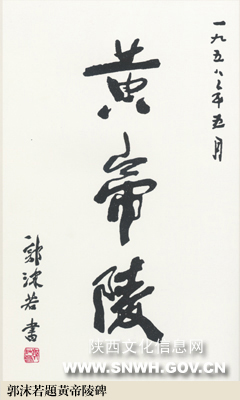 一九五八年五月
黄帝陵
郭沫若書
陕西文化信息网
WWW.SNWH.GOV.CN
郭沫若題黃帝陵碑